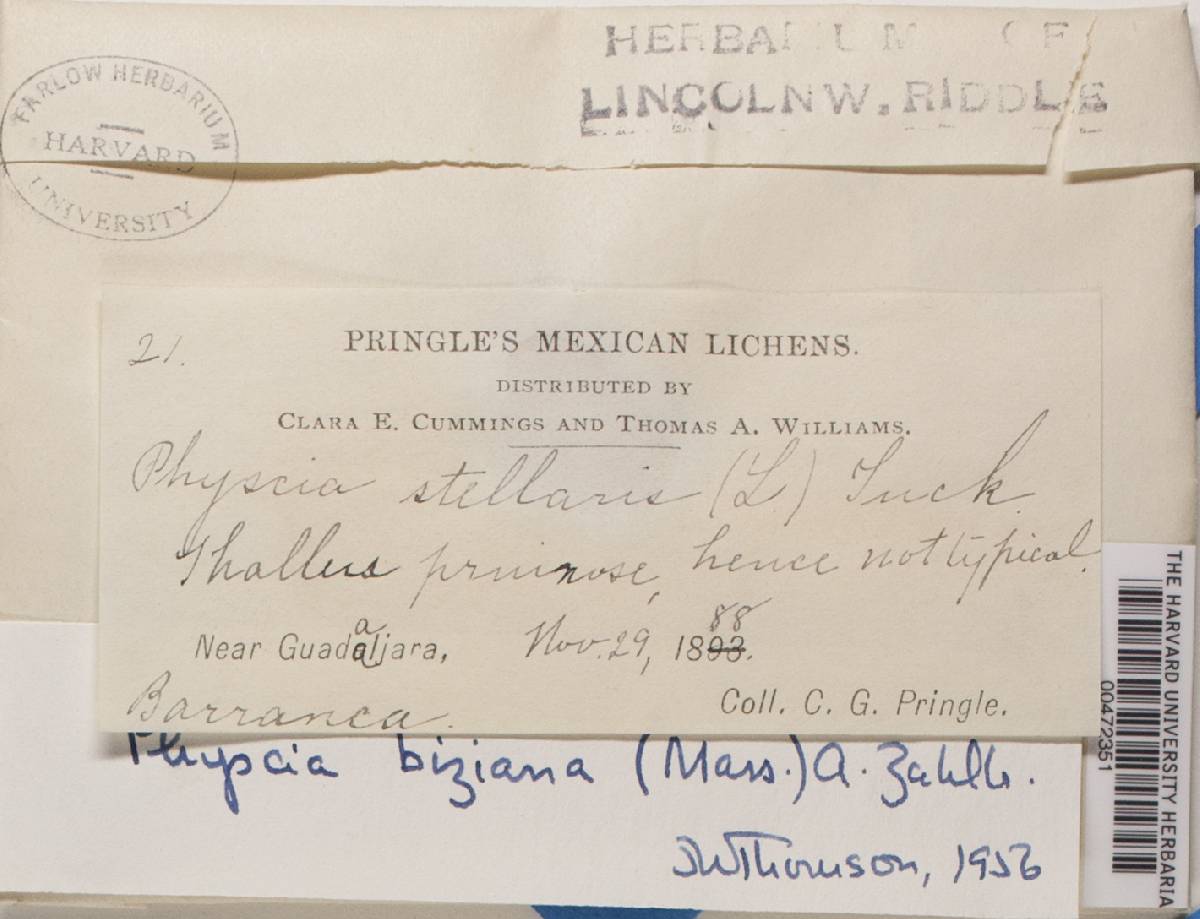 HERBARIUM OF
LINCOLN W. RIDDLE
FARLOW HERBARIUM
HARVARD
UNIVERSITY
21.
PRINGLE'S MEXICAN LICHENS.
DISTRIBUTED BY
CLARA E. CUMMINGS AND THOMAS A. WILLIAMS.
Physcia stellaris (L.) Tuck.
Thallus pruinose, hence not typical.
88
Near Guadalajara, Nov. 29, 1893.
Barranca.
Coll. C. G. Pringle.
Physcia biziana (Mass.) A. Zahlb.
JWThomson, 1956
THE HARVARD UNIVERSITY HERBARIA
00472351